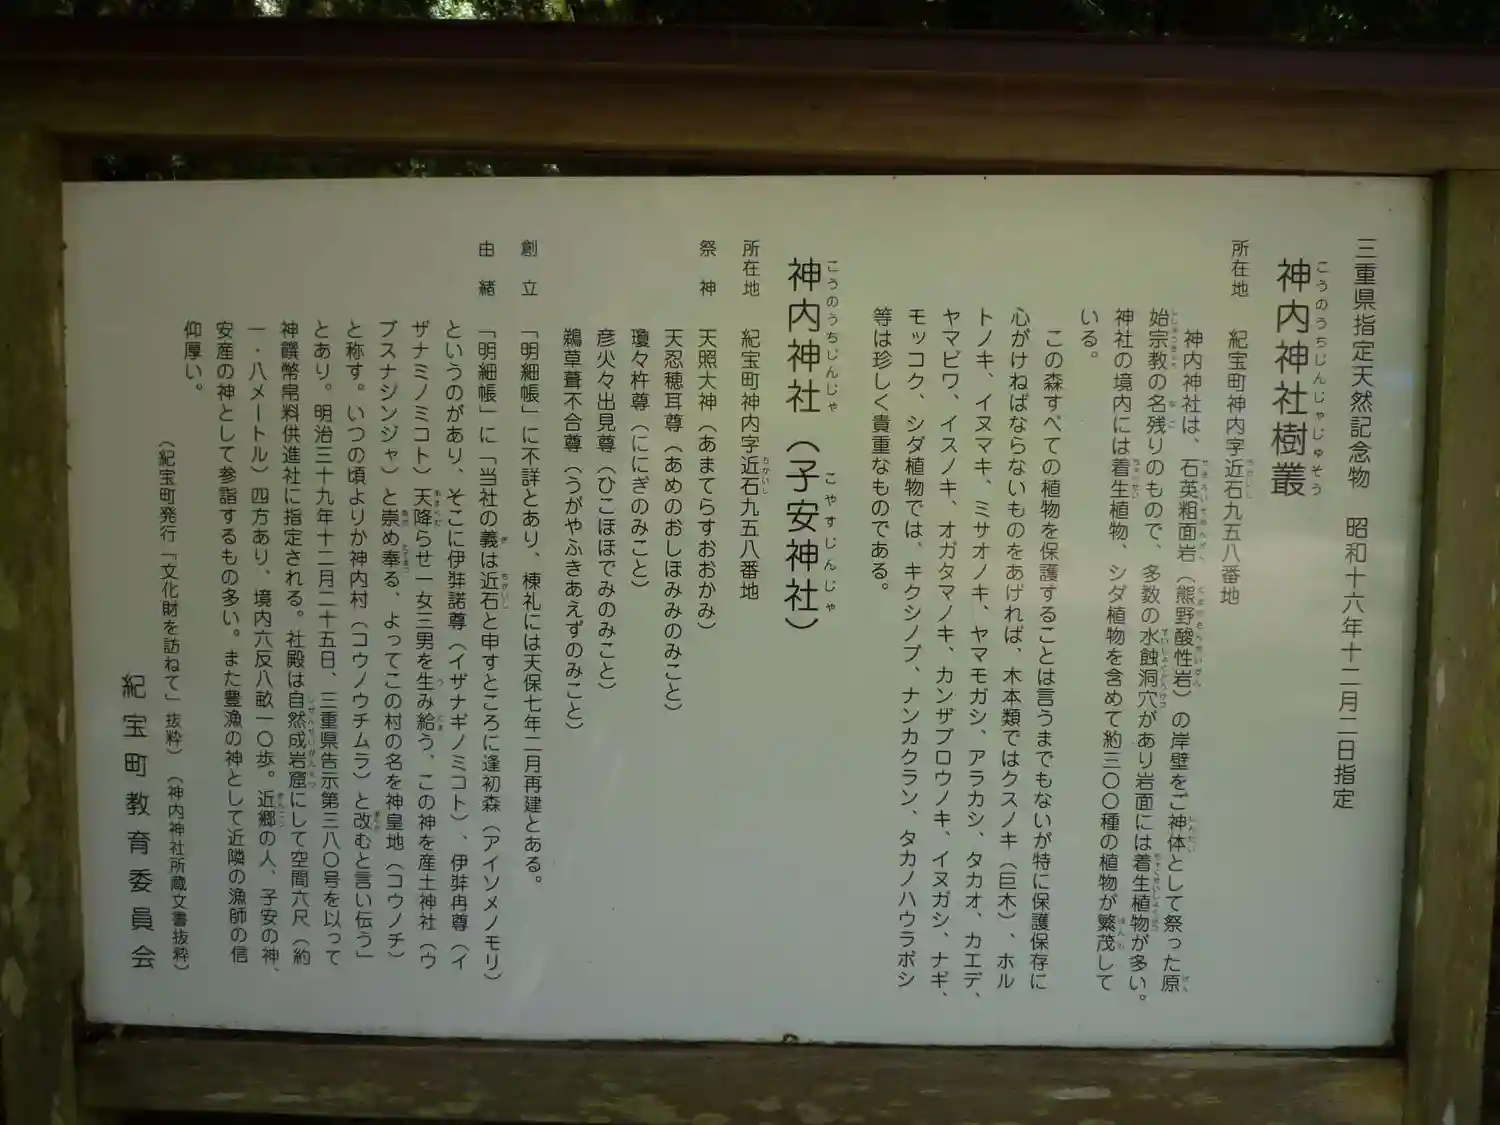 三重県指定天然記念物　昭和十六年十二月二日指定
神内神社樹叢
こうのうちじんじゃじゅそう
所在地　紀宝町神内字近石九五八番地
ちかいし
神内神社は、石英粗面岩（熊野酸性岩）の岸壁をご神体として祭った原
始宗教の名残りのもので、多数の水蝕洞穴があり岩面には着生植物が多い。
神社の境内には着生植物、シダ植物を含めて約三〇〇種の植物が繁茂して
いる。
この森すべての植物を保護することは言うまでもないが特に保護保存に
心がけねばならないものをあげれば、木本類ではクスノキ（巨木）、ホル
トノキ、イヌマキ、ミサオノキ、ヤマモガシ、アラカシ、タカオ、カエデ、
ヤマビワ、イスノキ、オガタマノキ、カンザブロウノキ、イヌガシ、ナギ、
モッコク、シダ植物では、キクシノブ、ナンカクラン、タカノハウラボシ
等は珍しく貴重なものである。
神内神社（子安神社）
こうのうちじんじゃ　こやすじんじゃ
所在地　紀宝町神内字近石九五八番地
ちかいし
祭　神　天照大神（あまてらすおおかみ）
天忍穂耳尊（あめのおしほみみのみこと）
瓊々杵尊（ににぎのみこと）
彦火々出見尊（ひこほほでみのみこと）
鵜草葺不合尊（うがやふきあえずのみこと）
創　立　「明細帳」に不詳とあり、棟礼には天保七年二月再建とある。
由　緒　「明細帳」に「当社の義は近石と申すところに逢初森（アイソメノモリ）
というのがあり、そこに伊弉諾尊（イザナギノミコト）、伊弉冉尊（イ
ザナミノミコト）天降らせ一女三男を生み給う、この神を産土神社（ウ
ブスナジンジャ）と崇め奉る、よってこの村の名を神皇地（コウノチ）
と称す。いつの頃よりか神内村（コウノウチムラ）と改むと言い伝う」
とあり。明治三十九年十二月二十五日、三重県告示第三八〇号を以って
神饌幣帛料供進社に指定される。社殿は自然成岩窟にして空間六尺（約
一・八メートル）四方あり、境内六反八畝一〇歩。近郷の人、子安の神、
安産の神として参詣するもの多い。また豊漁の神として近隣の漁師の信
仰厚い。
（紀宝町発行「文化財を訪ねて」抜粋）（神内神社所蔵文書抜粋）
紀宝町教育委員会